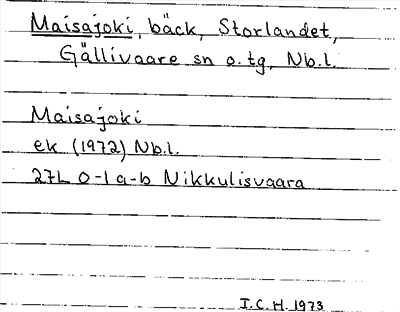 Maisajoki, bäck, Storlandet,
Gällivaare sn o. tg, Nb.l.
Maisajoki
ek (1972) Nb.l.
27L 0-1 a-b Nikkulisvaara
I.C.H. 1973